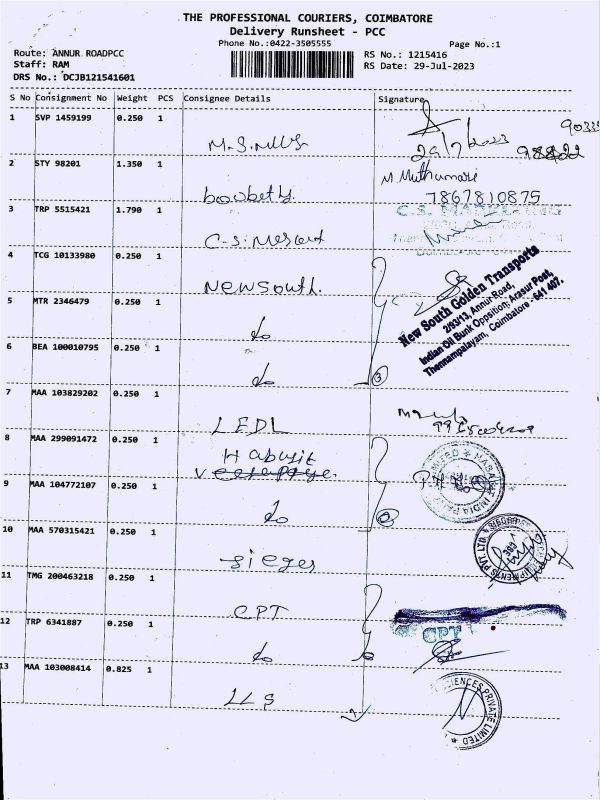 THE PROFESSIONAL COURIERS, COIMBATORE
Delivery Runsheet - PCC
Phone No.:0422-3505555
Page No.:1
Route: ANNUR ROADPCC
RS No.: 1215416
Staff: RAM
RS Date: 29-Jul-2023
DRS No.: DCJB121541601
S No Consignment No Weight PCS Consignee Details Signature
1 SVP 1459199 0.250 1
M.S.Mills
29/7/2023
2 STY 98201 1.350 1
M Muthumari
7867810875
3 TRP 5515421 1.790 1
C.S. MARKETING
4 TCG 10133980 0.250 1
New South
New South Golden Transports
2/93/13, Annur Road,
Indian Oil Bunk Opposition, Arasur Post,
Thennampalayam, Coimbatore - 641 407.
5 MTR 2346479 0.250 1
do
6 BEA 100010795 0.250 1
do
3
7 MAA 103829202 0.250 1
LEDL
8 MAA 299091472 0.250 1
9 MAA 104772107 0.250 1
do
2
10 MAA 570315421 0.250 1
sieger
11 TMG 200463218 0.250 1
CPT
12 TRP 6341887 0.250 1
CPT
do
13 MAA 103008414 0.825 1
LLS
SCIENCES PRIVATE LIMITED